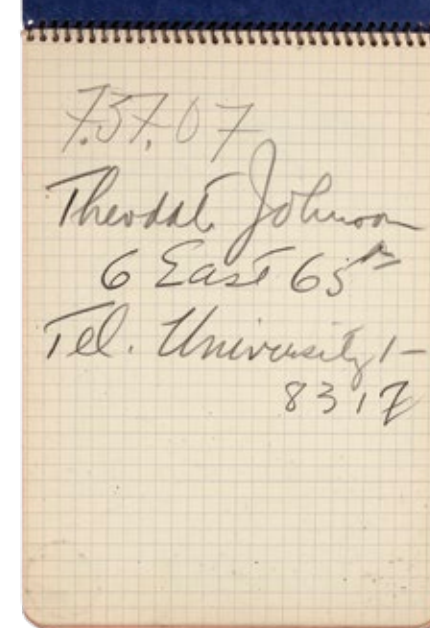 7.37.07
Theodate Johnson
6 East 65th
Tel. University 1-
8317